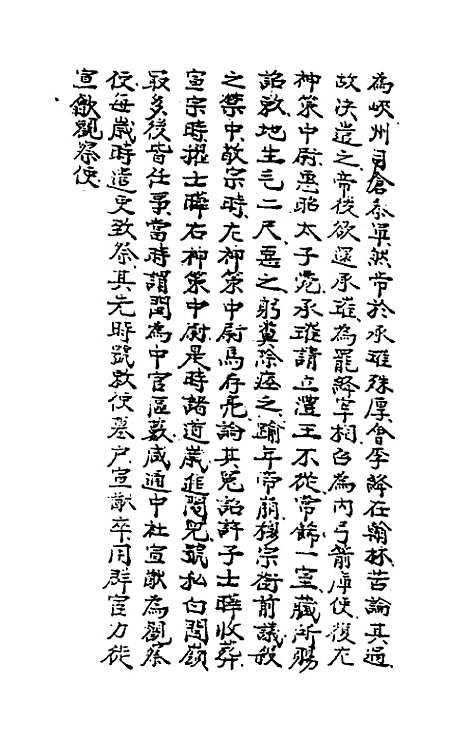 為峽州司倉參軍然帝於承璀殊厚會李絳在翰林苦論其過
故決遣之帝後欲還承璀為罷絳宰相召為內弓箭庫使復左
神策中尉惠昭太子薨承璀請立澧王不從常飾一室藏所賜
詔敕地生毛二尺惡之躬糞除瘞之踰年帝崩穆宗銜前議殺
之禁中敬宗時左神策中尉馬存亮論其冤詔許子士曄收葬
宣宗時擢士曄右神策中尉是時諸道歲進閹兒號私白閩嶺
最多後皆任事當時謂閩為中官區藪咸通中杜宣猷為觀察
使每歲時遣吏致祭其先時號敕使墓戶宣猷卒用群宦力徙
宣歙觀察使